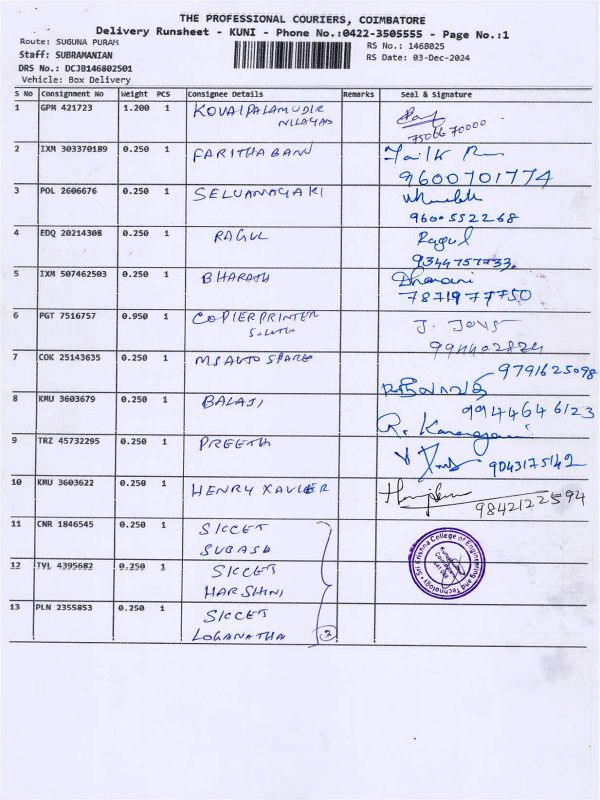 THE PROFESSIONAL COURIERS, COIMBATORE
Delivery Runsheet - KUNI - Phone No.:0422-3505555 - Page No.:1
Route: SUGUNA PURAM
RS No.: 1468025
Staff: SUBRAMANIAN
RS Date: 03-Dec-2024
DRS No.: DCJB146802501
Vehicle: Box Delivery
S No Consignment No Weight PCS Consignee Details Remarks Seal & Signature
1 GPM 421723 1.200 1 KOVAIPALAMUDIR
NILAYAM
7506670000
2 IXM 303370189 0.250 1 FARITHABANU
9600701774
3 POL 2606676 0.250 1 SELVANAYAKI
9600552268
4 EDQ 20214308 0.250 1 RAGUL Ragul
9344757733
5 IXM 507462503 0.250 1 BHARATH Dharani
7871977750
6 PGT 7516757 0.950 1 COPIERPRINTER J. Jons
7 COK 25143635 0.250 1 MS AUTO SPARE 9791625098
8 KMU 3603679 0.250 1 BALAJI 9944646123
9 TRZ 45732295 0.250 1 PREETH 9043175142
10 KMU 3603622 0.250 1 HENRY XAVIER 9842122594
11 CNR 1846545 0.250 1 SKCET
SUBASH
12 TVL 4395682 0.250 1 SKCET
HARSHINI
13 PLN 2355853 0.250 1 SKCET
LOGANATHA 2
Sri Krishna College of Engineering and Technology